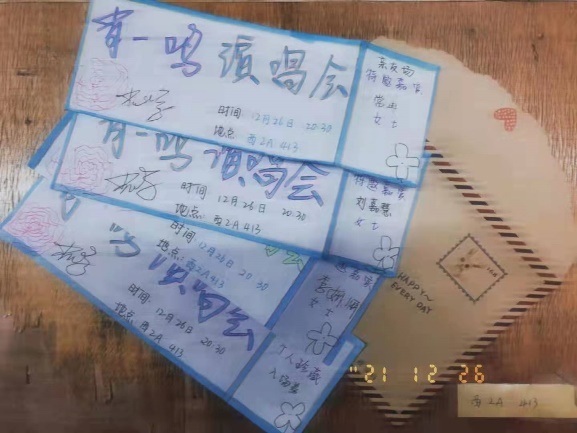 肖一鸣演唱会
时间: 12月26日 20:30
地点 西2A 413
亲友场
特邀嘉宾
常雨
女士
肖一鸣演唱会
时间 12月26日 20:30
地点: 西2A 413
特邀嘉宾
刘嘉慧
女士
时间: 12月26日 20:30
地点: 西2A 413
女士
时间: 12月26日 20:30
地点: 西2A 413
个人珍藏
入场券
HAPPY~
EVERY DAY
'21 12 26
西2A 413